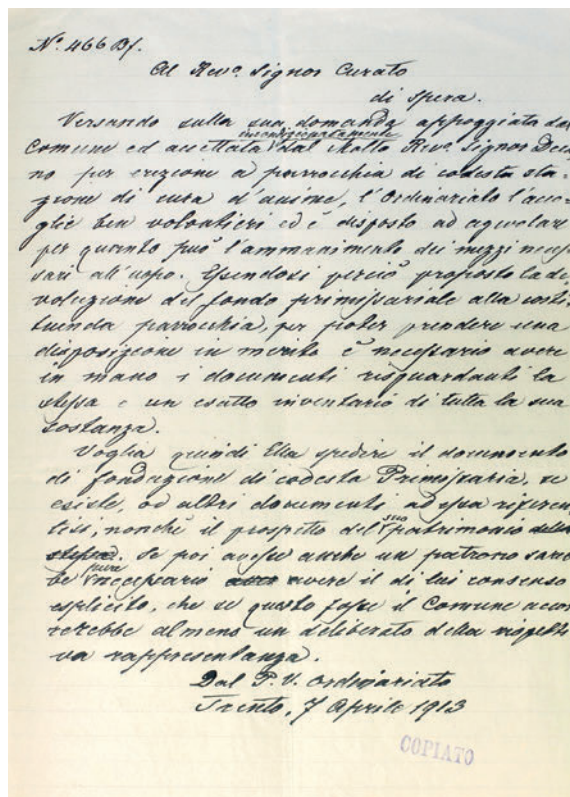 N.º 466 Bf.
Al Rev.º Signor Curato
di Spera.
Versando sulla sua domanda appoggiata dal
incondizionatamente
Comune ed accettata dal Molto Rev.º Signor Deca
no per erezione a parrocchia di codesta sta-
zione di cura d'anime, l'Ordinariato l'acco-
glie ben volontieri ed è disposto ad agevolare
per quanto può l'ammanimento dei mezzi neces
sari all'uopo. Essendosi perciò proposto la de
voluzione del fondo primissariale alla costi
tuenda parrocchia, per poter prendere una
disposizione in merito è necessario avere
in mano i documenti risguardanti la
stessa e un esatto inventario di tutta la sua
sostanza.
Voglia quindi Ella spedire il documento
di fondazione di codesta Primissaria, se
esiste, od altri documenti ad essa riferen
tisi, nonchè il prospetto del suo patrimonio della
stessa. Se poi avesse anche un patrono sareb
be pure necessario avere il di lui consenso
esplicito, che se questo fosse il Comune accor
rerebbe almeno un deliberato della rispetti
va rappresentanza.
Dal P. V. Ordinariato
Trento, 7 Aprile 1913
COPIATO